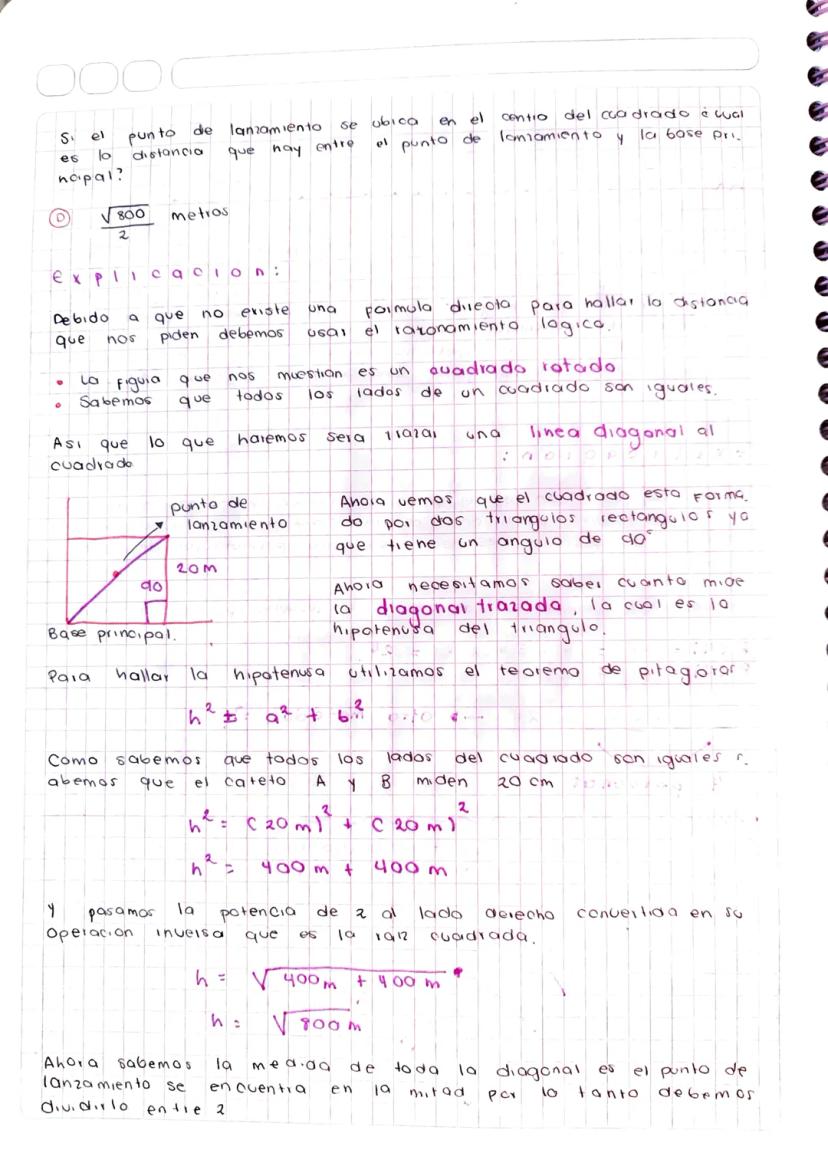 Si el punto de lanzamiento se ubica en el centro del cuadrado ¿cual
es la distancia que hay entre el punto de lanzamiento y la base pri-
ncipal?
D √800 metros
2
Explicacion:
Debido a que no existe una formula directa para hallar la distancia
que nos piden debemos usar el razonamiento logico.
• La figura que nos muestran es un cuadrado rotado
• Sabemos que todos los lados de un cuadrado son iguales.
Asi que lo que haremos sera trazar una linea diagonal al
cuadrado
punto de
lanzamiento
20 m
90
Base principal.
Ahora vemos que el cuadrado esta forma-
do por dos triangulos rectangulos ya
que tiene un angulo de 90°
Ahora necesitamos saber cuanto mide
la diagonal trazada, la cual es la
hipotenusa del triangulo.
Para hallar la hipotenusa utilizamos el teorema de pitagoras
h² = a² + b²
Como sabemos que todos los lados del cuadrado son iguales s-
abemos que el cateto A y B miden 20 cm
h² = (20 m)² + (20 m)²
h² = 400 m + 400 m
Y pasamos la potencia de 2 al lado derecho convertida en su
operacion inversa que es la raiz cuadrada.
h = √400 m + 400 m
h = √800 m
Ahora sabemos la medida de toda la diagonal es el punto de
lanzamiento se encuentra en la mitad por lo tanto debemos
dividirlo entre 2